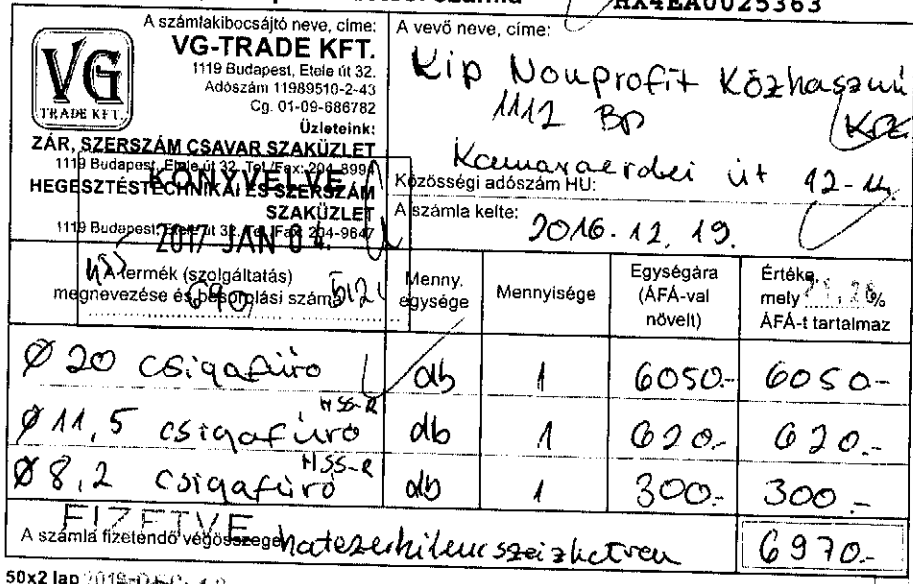 számla
HX4EA0025363
A számlakibocsájtó neve, címe:
VG-TRADE KFT.
1119 Budapest, Etele út 32.
Adószám 11989510-2-43
Cg. 01-09-686782
Üzleteink:
ZÁR, SZERSZÁM CSAVAR SZAKÜZLET
1119 Budapest, Etele út 32. Tel./Fax: 204-8994
HEGESZTÉSTECHNIKAI ÉS SZERSZÁM
SZAKÜZLET
1119 Budapest, Etele út 32. Tel./Fax: 204-9647
VG
TRADE KFT.
KÖNYVELVE
2017 JAN 04.
690 512
A vevő neve, címe:
Kip Nonprofit Közhasznú
1112 BP Kft
Kamaraerdei út 12-14.
Közösségi adószám HU:
A számla kelte:
2016. 12. 19.
A termék (szolgáltatás)
megnevezése és besorolási száma
Menny.
egysége
Mennyisége
Egységára
(ÁFÁ-val
növelt)
Értéke,
mely 21,26%
ÁFÁ-t tartalmaz
Ø 20 csigafúró db 1 6050.- 6050-
Ø 11,5 csigafúró HSS-R db 1 620.- 620.-
Ø 8,2 csigafúró HSS-R db 1 300.- 300.-
FIZETVE
A számla fizetendő végösszege hatezerkilencszázhetven 6970.-
50x2 lap